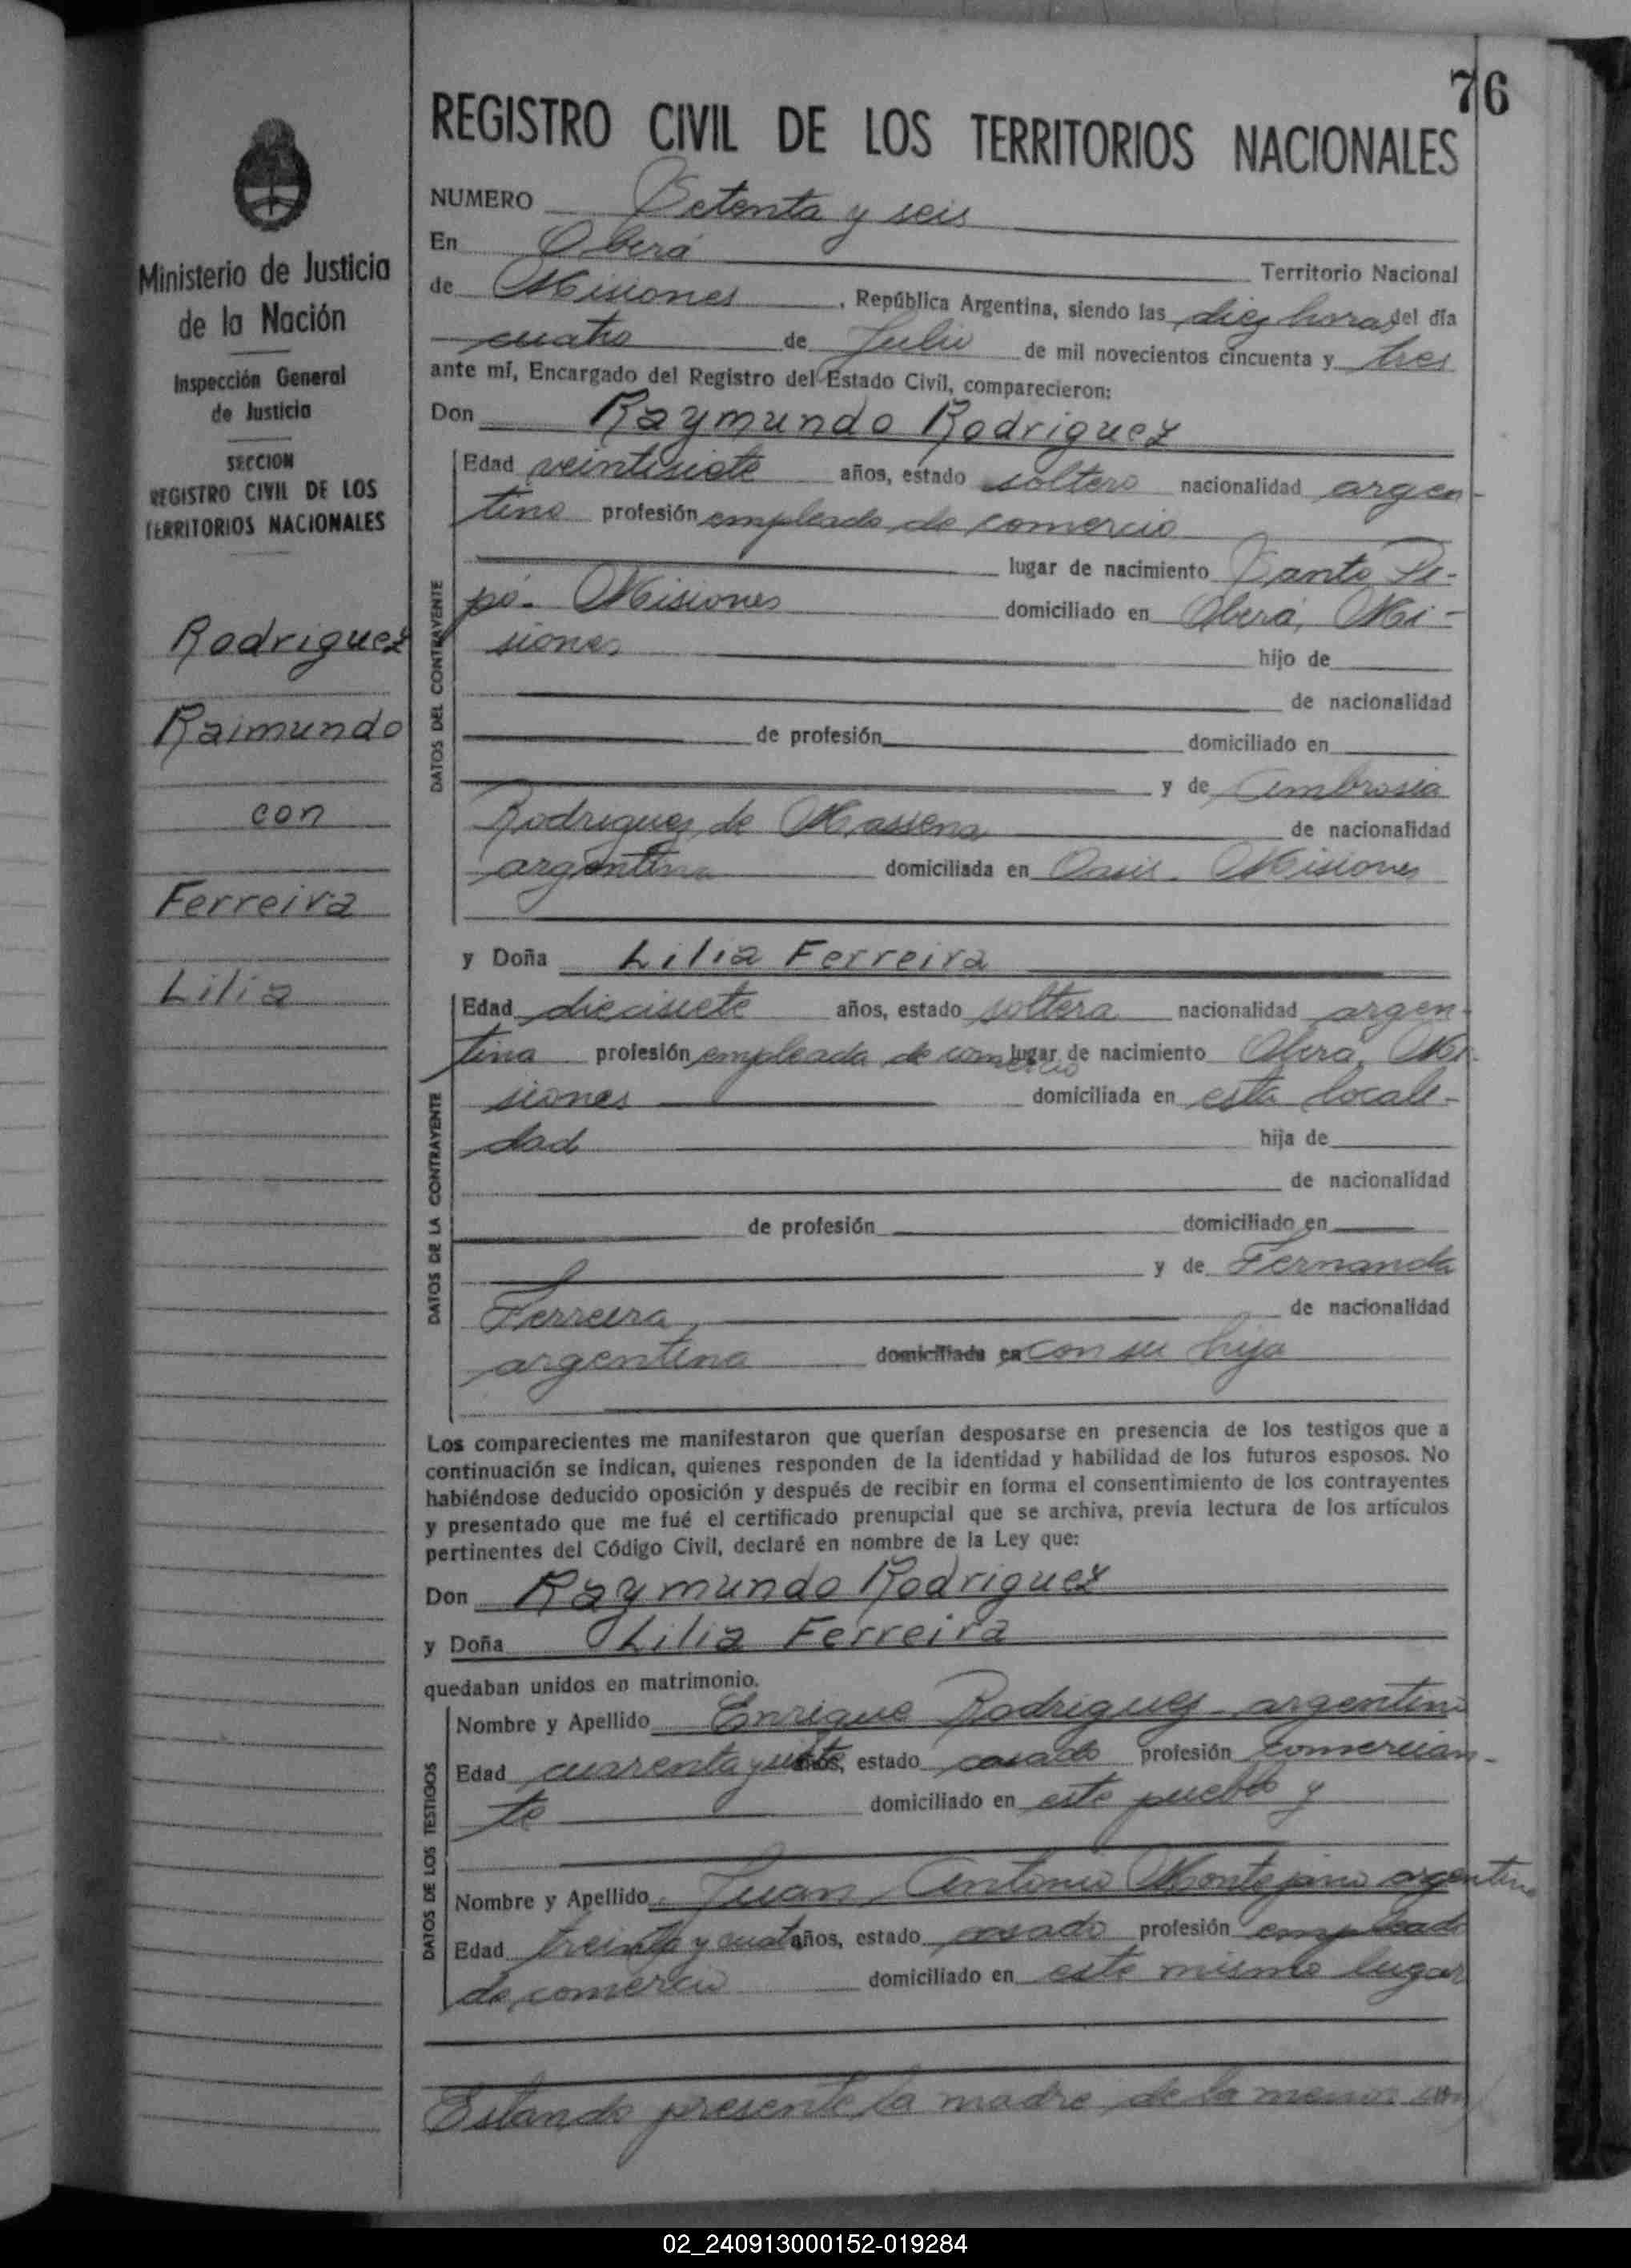 76
REGISTRO CIVIL DE LOS TERRITORIOS NACIONALES
Ministerio de Justicia
de la Nación
Inspección General
de Justicia
SECCION
REGISTRO CIVIL DE LOS
TERRITORIOS NACIONALES
Rodriguez
Raimundo
con
Ferreira
Lilia
NUMERO Setenta y seis
En Oberá Territorio Nacional
de Misiones, República Argentina, siendo las diez horas del día
cuatro de Julio de mil novecientos cincuenta y tres
ante mí, Encargado del Registro del Estado Civil, comparecieron:
Don Raymundo Rodriguez
DATOS DEL CONTRAYENTE
Edad veintisiete años, estado soltero nacionalidad argen-
tino profesión empleado de comercio
lugar de nacimiento Santo Pi-
pó. Misiones domiciliado en Oberá, Mi-
siones hijo de
de nacionalidad
de profesión domiciliado en
y de Ambrosia
Rodriguez de Massena de nacionalidad
argentina domiciliada en Oasis. Misiones
y Doña Lilia Ferreira
DATOS DE LA CONTRAYENTE
Edad diecisiete años, estado soltera nacionalidad argen-
tina profesión empleada de comercio lugar de nacimiento Oberá, Mi-
siones domiciliada en esta locali-
dad hija de
de nacionalidad
de profesión domiciliado en
y de Fernanda
Ferreira, de nacionalidad
argentina domiciliada en con su hija
Los comparecientes me manifestaron que querían desposarse en presencia de los testigos que a
continuación se indican, quienes responden de la identidad y habilidad de los futuros esposos. No
habiéndose deducido oposición y después de recibir en forma el consentimiento de los contrayentes
y presentado que me fué el certificado prenupcial que se archiva, previa lectura de los artículos
pertinentes del Código Civil, declaré en nombre de la Ley que:
Don Raymundo Rodriguez
y Doña Lilia Ferreira
quedaban unidos en matrimonio.
DATOS DE LOS TESTIGOS
Nombre y Apellido Enrique Rodriguez argentino
Edad cuarenta y siete años, estado casado profesión comercian-
te domiciliado en este pueblo y
Nombre y Apellido Juan Antonio Montejano argentino
Edad treinta y cuatro años, estado casado profesión empleado
de comercio domiciliado en este mismo lugar
Estando presente la madre de la menor con
02_240913000152-019284